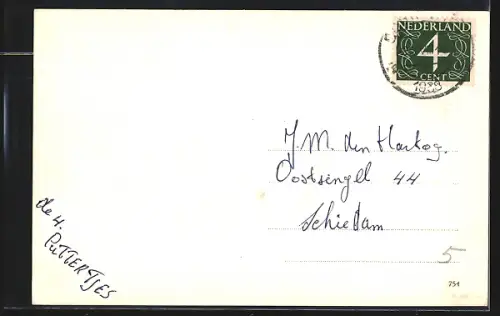 NEDERLAND
4
CENT
J.M. den Hartog.
Oostsingel 44
Schiedam
5
de 4.
PUTTERTJES
751